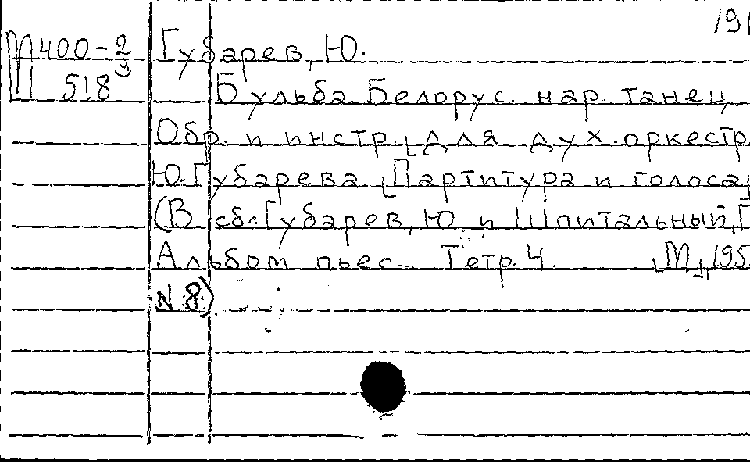 191
М 400-2/3 Губарев, Ю.
518
Бульба Белорус. нар. танец.
Обр. и инстр. [для дух. оркестр
Ю. Губарева. [Партитура и голоса
(В сб.: Губарев, Ю. и Шпитальный, Г
Альбом пьес. Тетр. 4. [М.], 195
N 8)